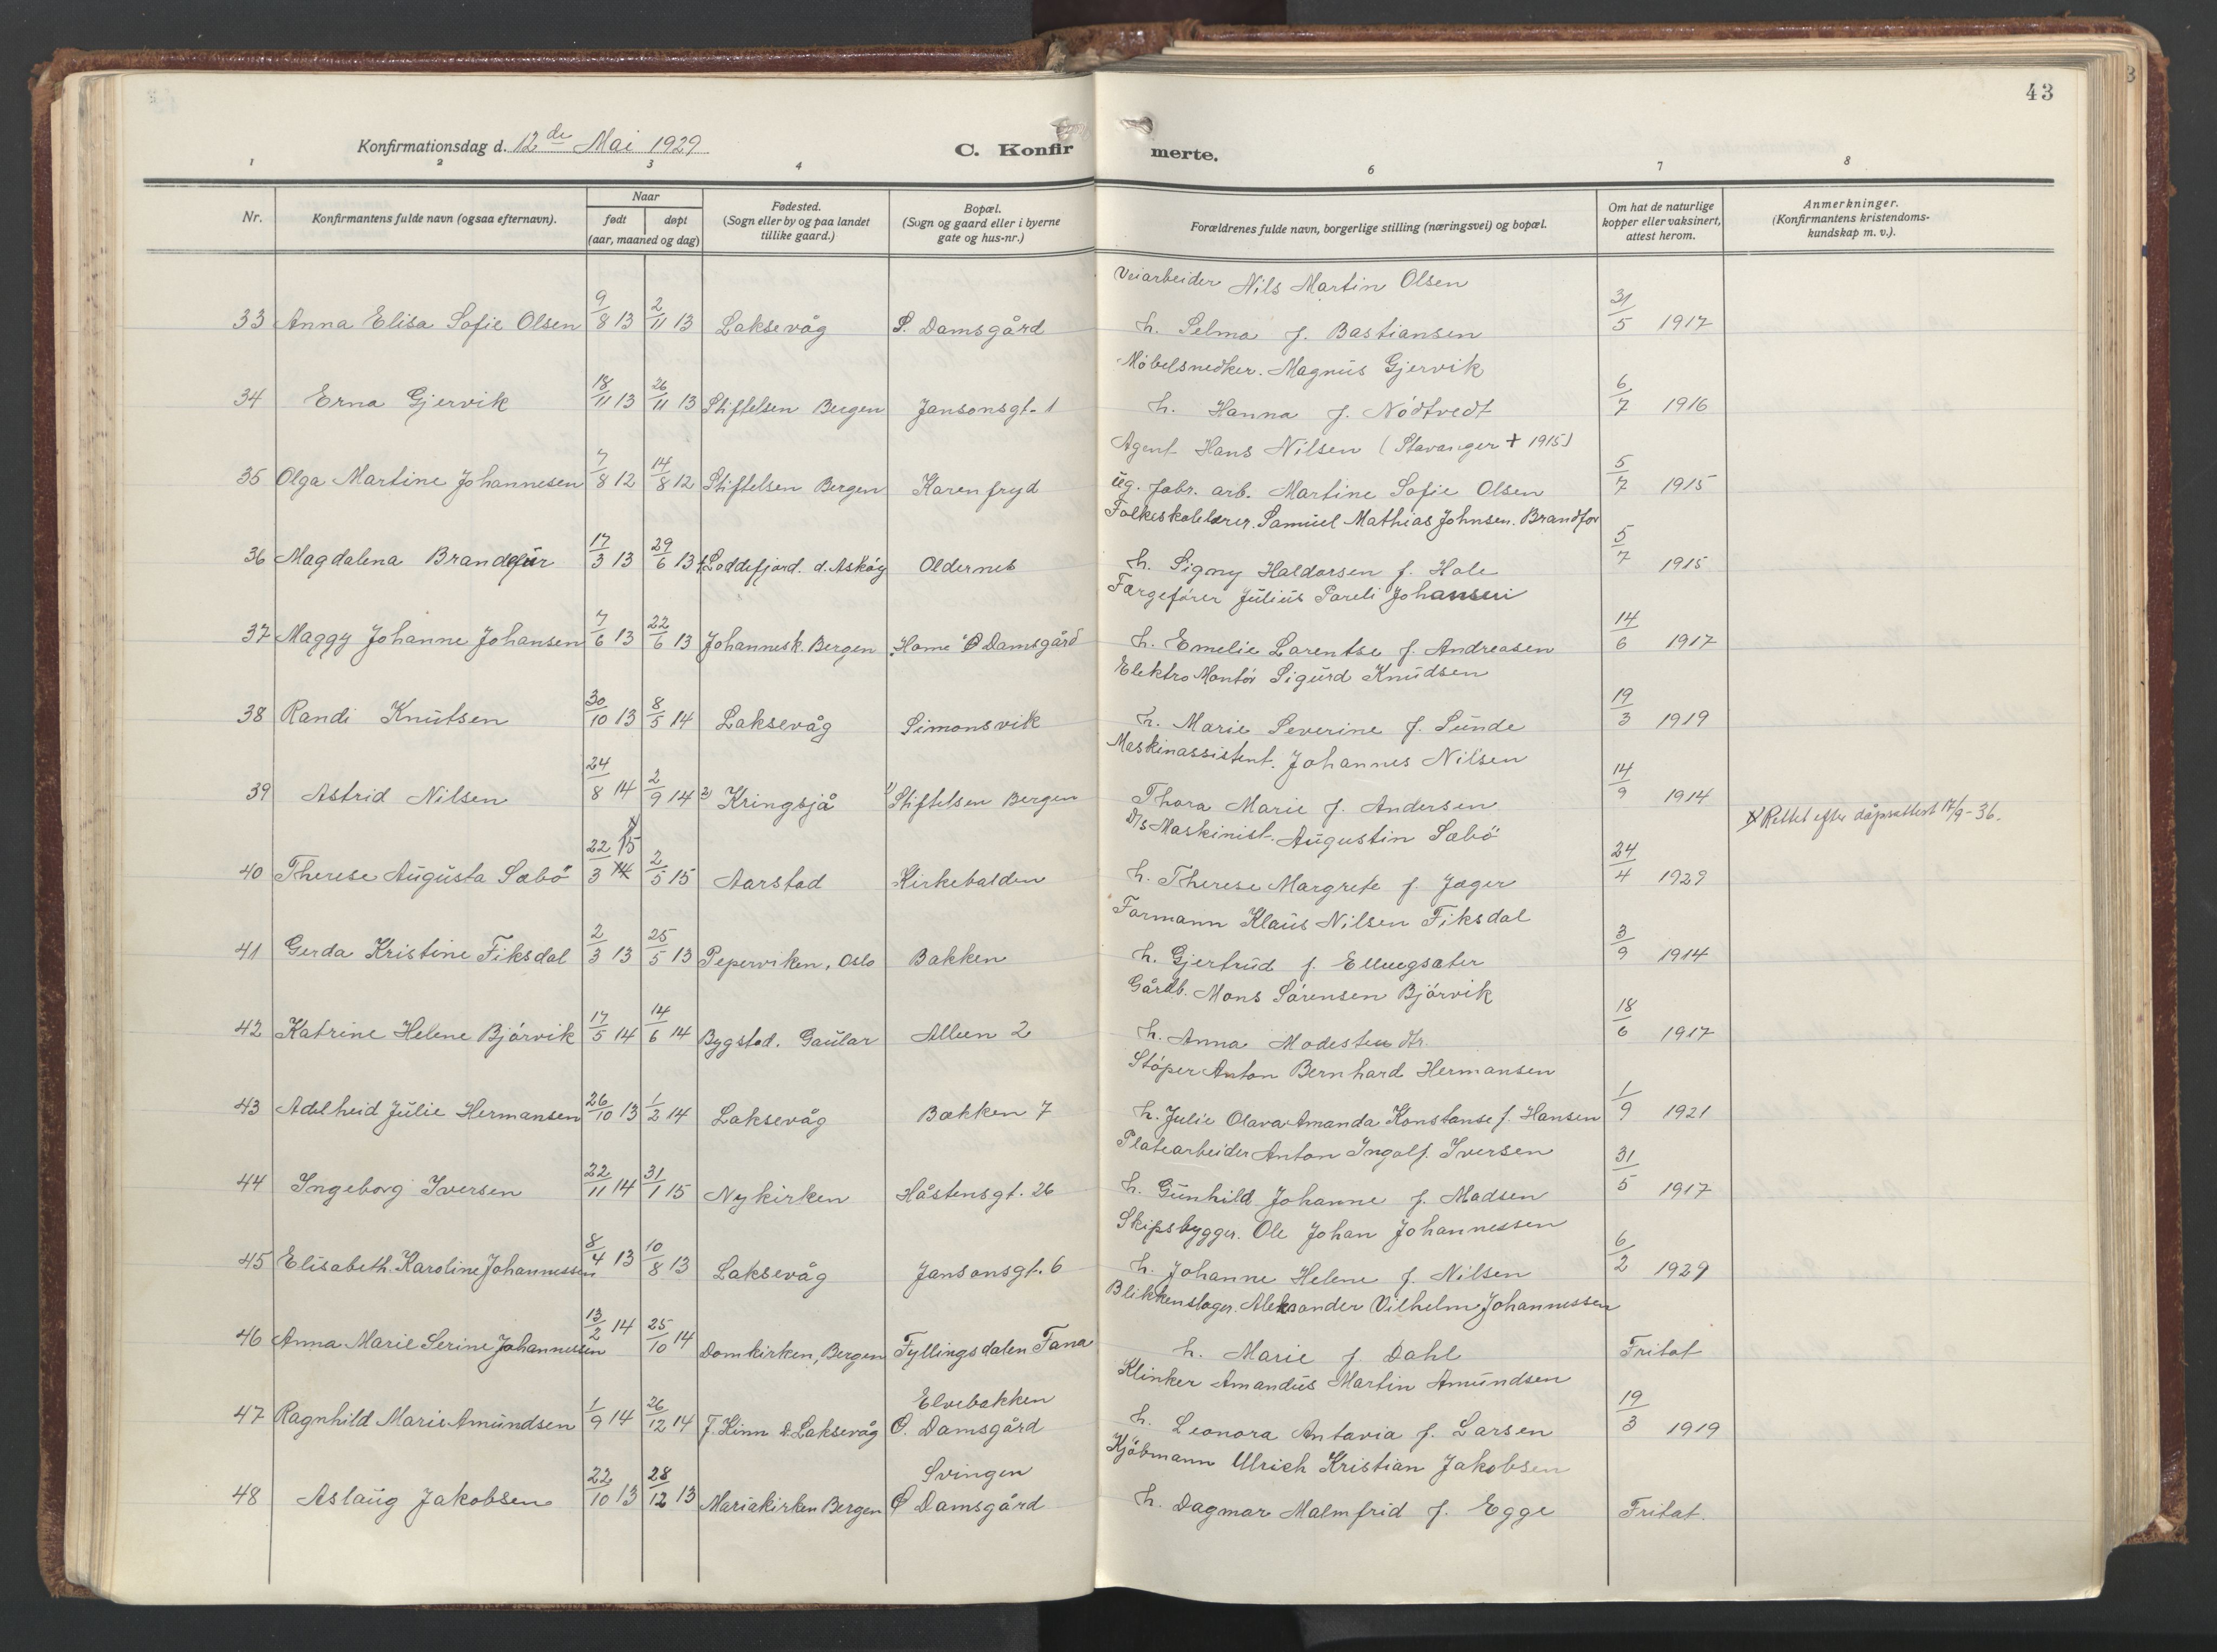 43
Konfirmationsdag d. 12de Mai 1929
C. Konfirmerte.
1 2 3 4 6 7 8
Nr.
Konfirmantens fulde navn (ogsaa efternavn).
Naar
født
døpt
(aar, maaned og dag)
Fødested.
(Sogn eller by og paa landet
tillike gaard.)
Bopæl.
(Sogn og gaard eller i byerne
gate og hus-nr.)
Forældrenes fulde navn, borgerlige stilling (næringsvei) og bopæl.
Om hat de naturlige
kopper eller vaksinert,
attest herom.
Anmerkninger.
(Konfirmantens kristendoms-
kundskap m. v.).
Veiarbeider Nils Martin Olsen
33 Anna Elisa Sofie Olsen 9/8 13 2/11 13 Laksevåg S. Damsgård h. Selma f. Bastiansen 31/5 1917
Möbelsnedker. Magnus Gjervik
34 Erna Gjervik 18/11 13 26/11 13 Stiftelsen Bergen Jansonsgt. 1 h. Hanna f. Nödtvedt 6/7 1916
Agent Hans Nilsen (Stavanger + 1915)
35 Olga Martine Johannesen 7/8 12 14/8 12 Stiftelsen Bergen Karenfryd ug. fabr. arb. Martine Sofie Olsen 5/7 1915
Folkeskolelærer. Samuel Mathias Johnsen. Brandfor
36 Magdalena 17/3 13 29/6 13 Loddefjord. d. Askøy Oldernes h. Signy Haldorsen f. Hole 5/7 1915
Fargefører Julius Pareli Johansen
37 Maggy Johanne Johansen 7/6 13 22/6 13 Johannesk. Bergen Home Ø Damsgård h. Emelie Larentse f. Andreasen 14/6 1917
Elektro Montör Sigurd Knudsen
38 Randi Knutsen 30/10 13 8/5 14 Laksevåg Simonsvik h. Marie Severine f. Sunde 19/3 1919
Maskinassistent. Johannes Nilsen
39 Astrid Nilsen 24/8 14 2/9 14 2) Kringsjå 1) Stiftelsen Bergen Thora Marie f. Andersen 14/9 1914
D/s Maskinist. Augustin Sæbö
x) Rettet efter dåpsattest 17/9-36.
40 Therese Augusta Sæbö 22/3 14 x) 15 2/5 15 Aarstad Kirkebakken h. Therese Margrete f. Jæger 24/4 1929
Formann Klaus Nilsen Fiksdal
41 Gerda Kristine Fiksdal 2/3 13 25/5 13 Peperviken, Oslo Bakken h. Gjertrud f. Ellingsæter 3/9 1914
Gårdb. Mons Sörensen Bjørvik
42 Katrine Helene Bjørvik 17/5 14 14/6 14 Bygstad. Gaular Alleen 2 h. Anna Modesten dtr. 18/6 1917
Stöper Anton Bernhard Hermansen
43 Adelheid Julie Hermansen 26/10 13 1/2 14 Laksevåg Bakken 7 h. Julie Olava Amanda Konstanse f. Hansen 1/9 1921
Platearbeider Anton Ingolf. Iversen
44 Ingeborg Iversen 22/11 14 31/1 15 Nykirken Håstensgt. 26 h. Gunhild Johanne f. Madsen 31/5 1917
Skipsbygger. Ole Johan Johannessen
45 Elisabeth Karoline Johannessen 8/4 13 10/8 13 Laksevåg Jansonsgt. 6 h. Johanne Helene f. Nilsen 6/2 1929
Blikkenslager. Aleksander Vilhelm Johannessen
46 Anna Marie Serine Johannessen 13/2 14 25/10 14 Domkirken, Bergen Fyllingsdalen Fana h. Marie f. Dahl Fritat
Klinker Amandus Martin Amundsen
Elvebakken
47 Ragnhild Marie Amundsen 1/9 14 26/12 14 F. Kinn d. Laksevåg Ø. Damsgård h. Leonora Antavia f. Larsen 19/3 1919
Kjöbmann Ulrich Kristian Jakobsen
Svingen
48 Aslaug Jakobsen 22/10 13 28/12 13 Mariakirken Bergen Ø Damsgård h. Dagmar Malmfrid f. Egge Fritat.